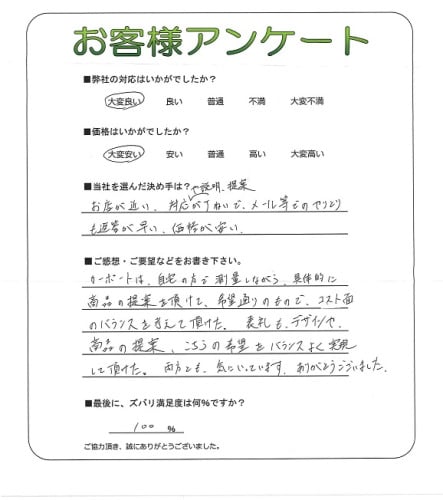 お客様アンケート
■弊社の対応はいかがでしたか？
大変良い 良い 普通 不満 大変不満
■価格はいかがでしたか？
大変安い 安い 普通 高い 大変高い
■当社を選んだ決め手は？や説明、提案
お店が近い、対応が丁ねいで、メール等でのやりとり
も返答が早い、価格が安い
■ご感想・ご要望などをお書き下さい。
カーポートは、自宅の方で測量しながら、具体的に
商品の提案を頂けて、希望通りのもので、コスト面
のバランスを考えて頂けた。表札も、デザインや、
商品の提案、こちらの希望をバランスよく実現
して頂けた。両方とも、気にいっています。ありがとうございました。
■最後に、ズバリ満足度は何%ですか？
100 %
ご協力頂き、誠にありがとうございました。